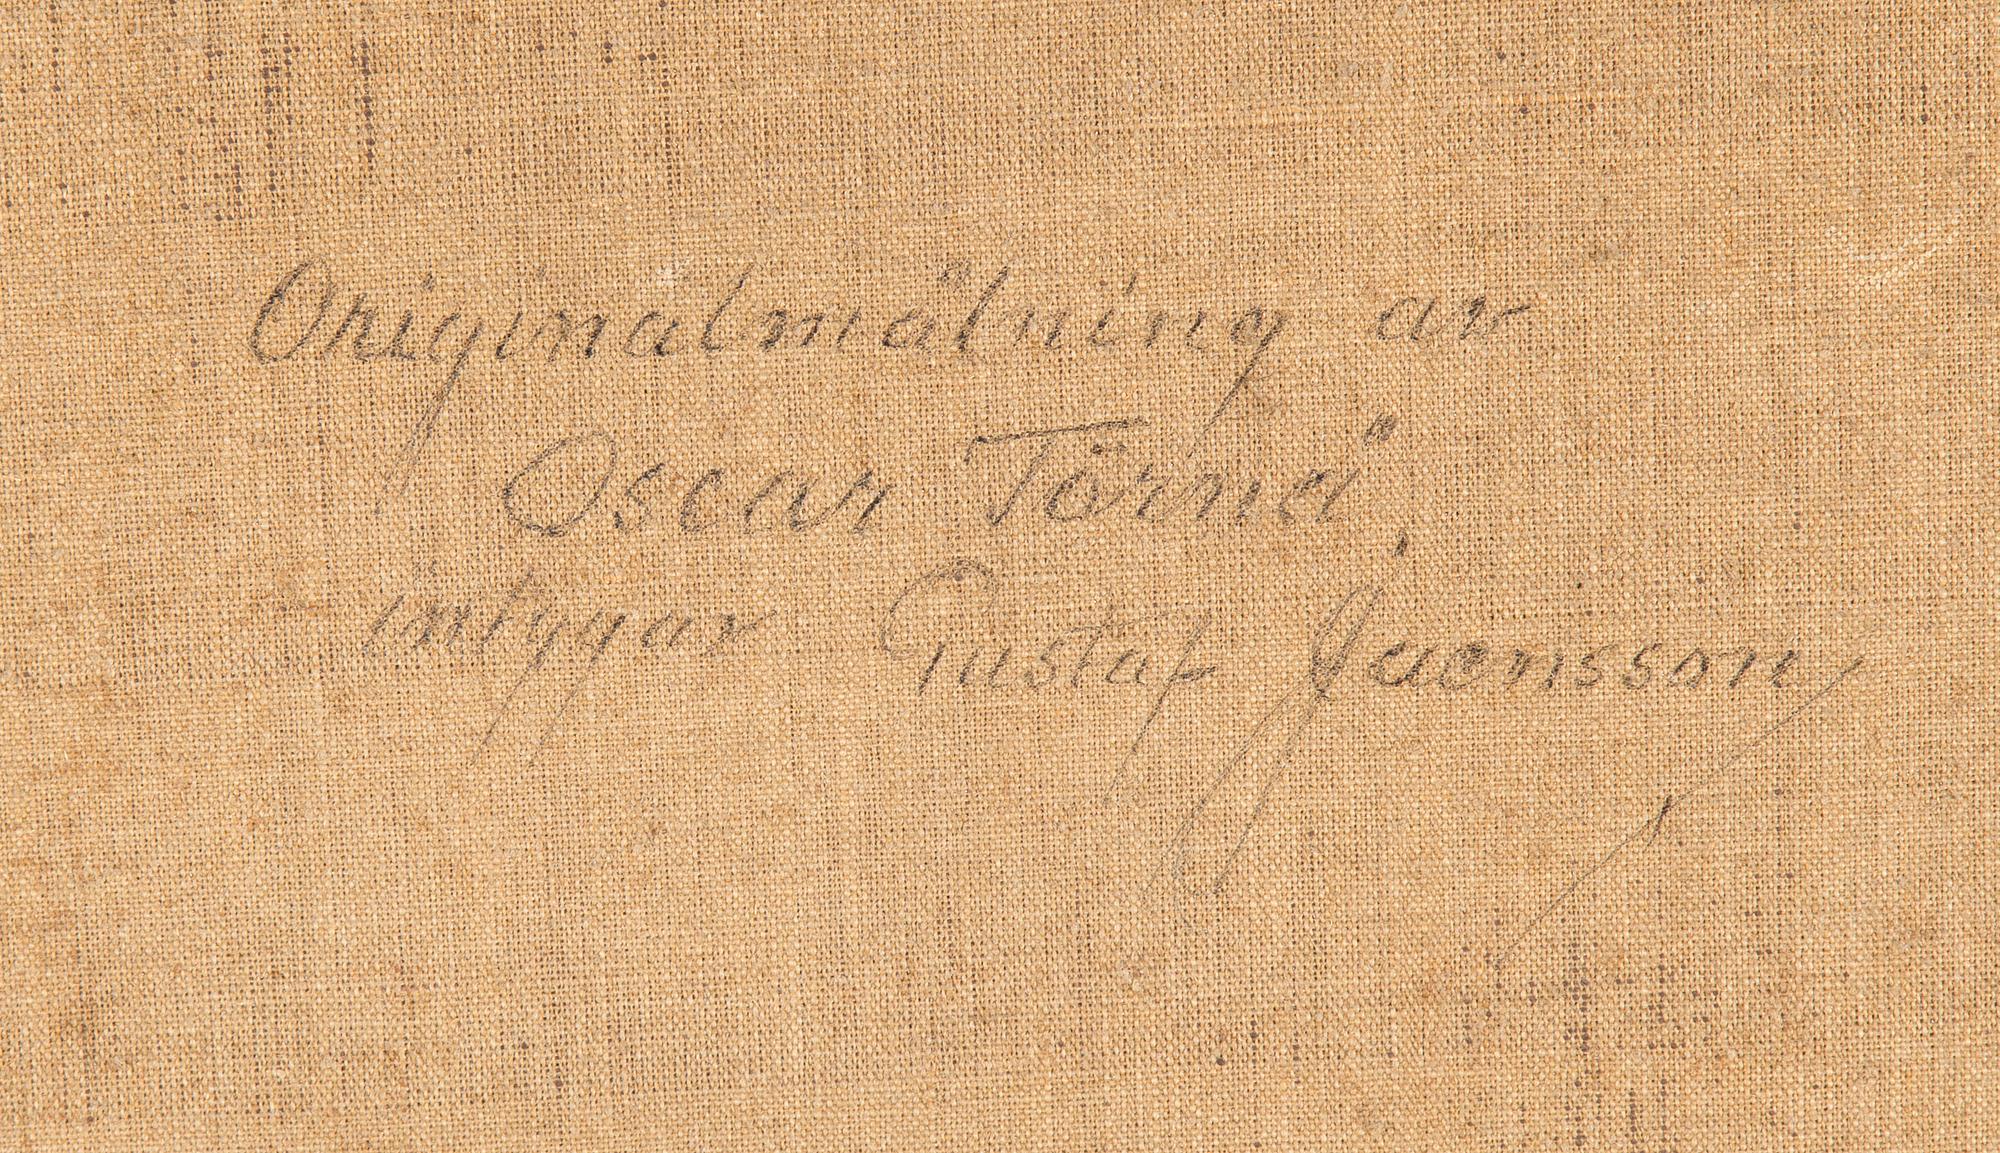 Originalmålning av
Oscar Törnå,
intygar Gustaf Jaensson